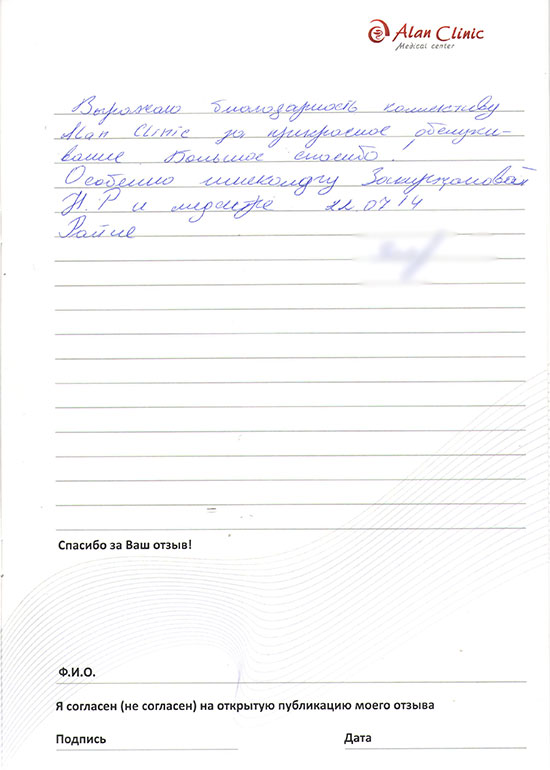 Alan Clinic
Medical center
Выражаю благодарность коллективу
Alan Clinic за прикрасное обслужи-
вание Большое спасибо!
Особенно гинекологу
Н.Р и медсестре 22.07 14
Райне
Спасибо за Ваш отзыв!
Ф.И.О.
Я согласен (не согласен) на открытую публикацию моего отзыва
Подпись Дата